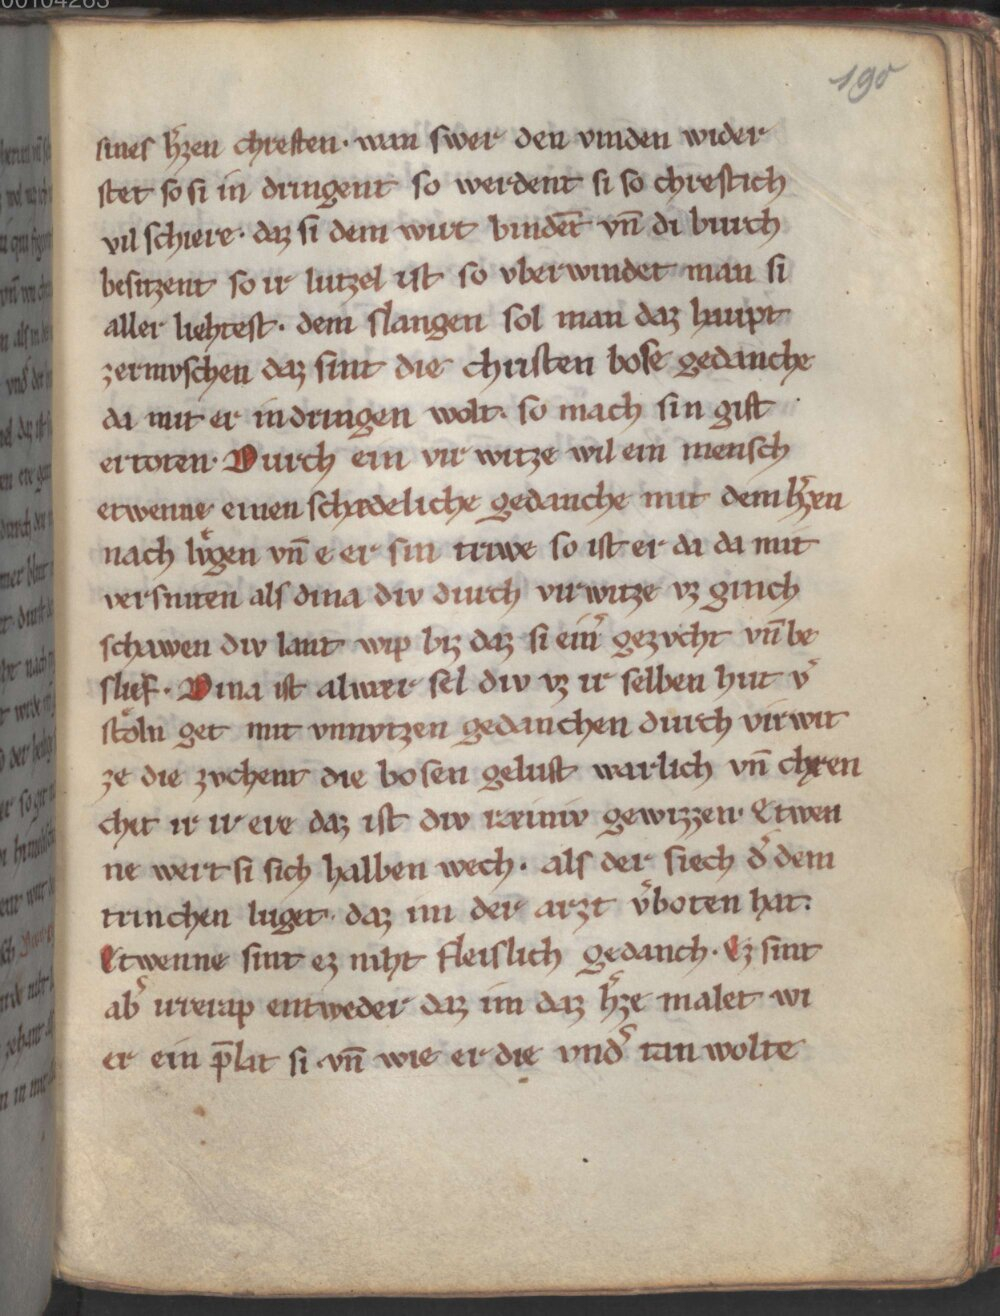 190
sines h̉zen chresten · wan swer den vinden wider
stet so si in dringent so werdent si so chreftich
vil schiere · daz si dem wirt bindēt vn̄ di burch
besitzent so ir lutzel ist so vberwindet man si
aller liehtest · dem slangen sol man daz haupt
zermvschen daz sint die christen bose gedanche
da mit er in dringen wolt · so mach sin gift
ertoten · Durch ein vir witze wil ein mensch
etwenne einen schedeliche gedanche mit dem h̉zen
nach lvͦgen vn̄ e er sin triwe so ist er da da mit
versniten als dina div durch virwitze vz ginch
schawen div lant wip biz daz si ein̉ gezvcht vn̄ be
slief · Dina ist alwær sel div vz ir selben hut v̉
stoln get mit vnnvtzen gedanchen durch virwit
ze die zvchent die bosen gelust warlich vn̄ chren
chet ir ir ere daz ist div ræiniv gewizzen · Etwen
ne wert si sich halben wech · als der siech d̉ dem
trinchen luget · daz im der arzt v̉boten hat ·
Etwenne sint ez niht fleislich gedanch · Ez sint
ab̉ vreitap entweder daz im daz h̉ze malet wi
er ein p̄lat si · vn̄ wie er die vnd̉ tan wolte